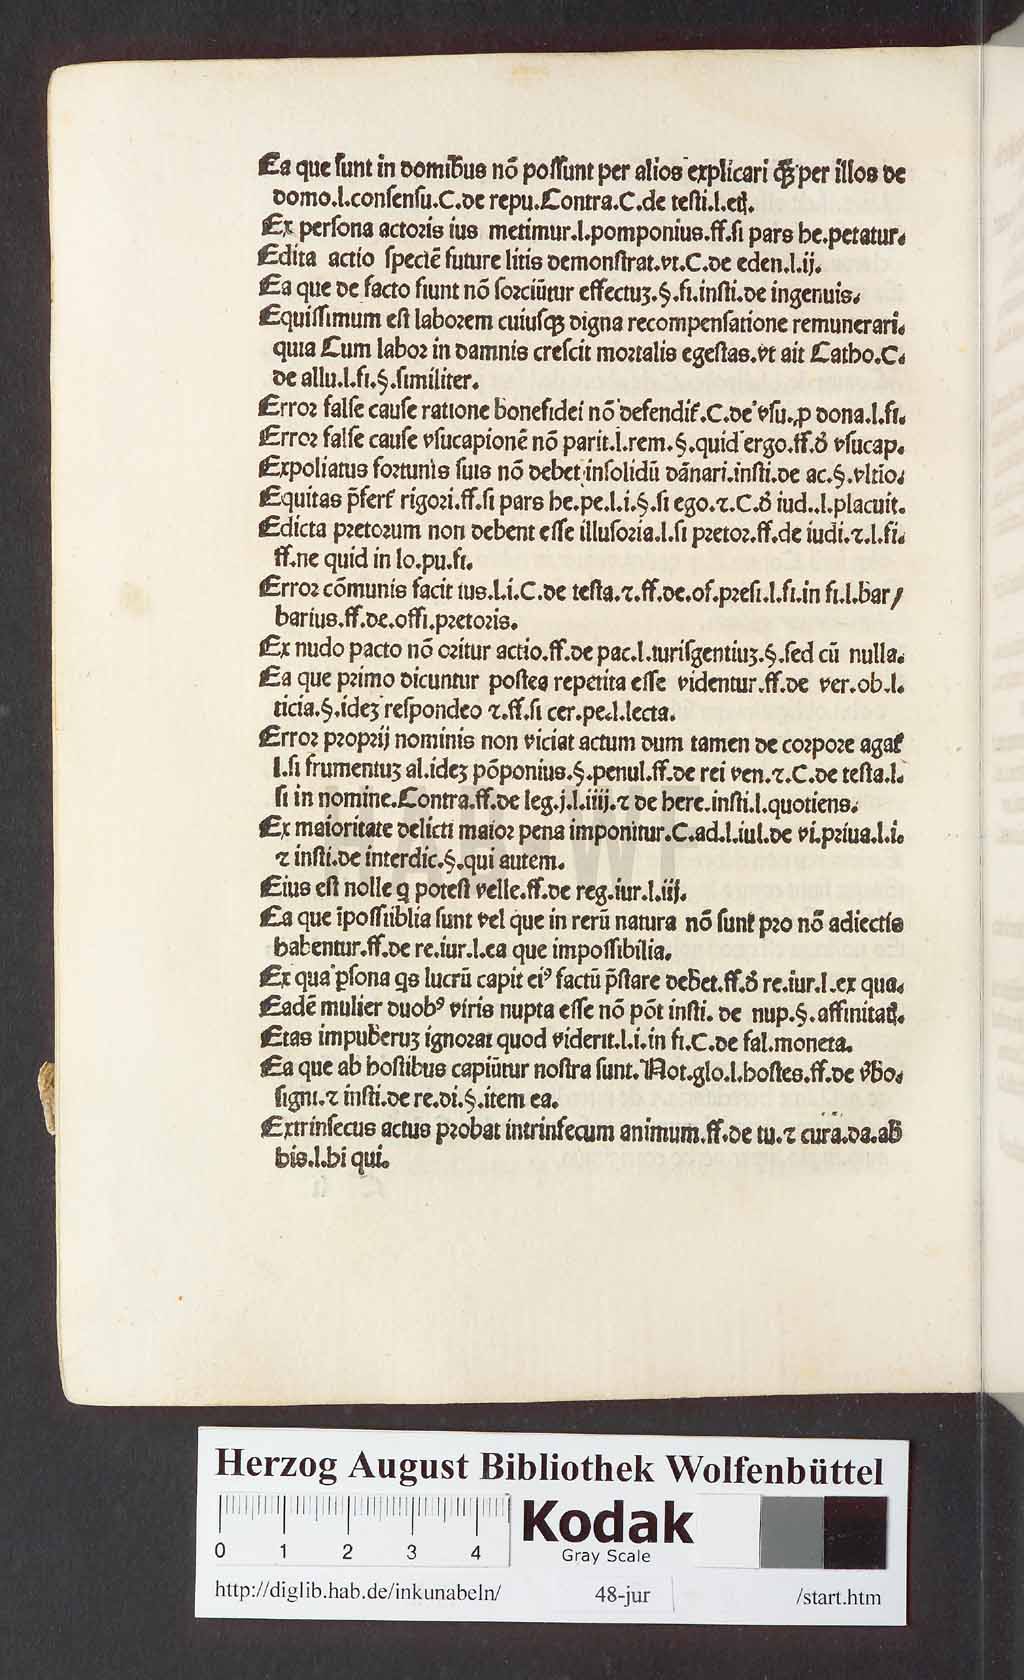 Ea que sunt in domibus nō possunt per alios explicari qꝫ per illos de
domo.l.consensu.C.de repu.Contra.C.de testi.l.etꝭ.
Ex persona actoris ius metimur.l.pomponius.ff.si pars he.petatur.
Edita actio speciē future litis demonstrat.vt.C.de eden.l.ij.
Ea que de facto fiunt nō sorciūtur effectuꝫ.§.fi.insti.de ingenuis.
Equissimum est laborem cuiusqꝫ digna recompensatione remunerari.
quia Cum labor in damnis crescit mortalis egestas.vt ait Catho.C.
de allu.l.fi.§.similiter.
Error false cause ratione bonefidei nō defendit̄.C.de vsu.ꝓ dona.l.fi.
Error false cause vsucapionē nō parit.l.rem.§.quid ergo.ff.đ vsucap.
Expoliatus fortunis suis nō debet insolidū dānari.insti.de ac.§.vltio.
Equitas p̄fert̄ rigori.ff.si pars he.pe.l.i.§.si ego.⁊.C.đ iud..l.placuit.
Edicta pretorum non debent esse illusoria.l.si pretor.ff.de iudi.⁊.l.fi.
ff.ne quid in lo.pu.fi.
Error cōmunis facit ius.l.i.C.de testa.⁊.ff.de.of.presi.l.fi.in fi.l.bar/
barius.ff.de.offi.pretoris.
Ex nudo pacto nō oritur actio.ff.de pac.l.iurisgentiuꝫ.§.sed cū nulla.
Ea que primo dicuntur postea repetita esse videntur.ff.de ver.ob.l.
ticia.§.ideꝫ respondeo ⁊.ff.si cer.pe.l.lecta.
Error proprij nominis non viciat actum dum tamen de corpore agat̄
l.si frumentuꝫ al.ideꝫ pōponius.§.penul.ff.de rei ven.⁊.C.de testa.l.
si in nomine.Contra.ff.de leg.j.l.iiij.⁊ de here.insti.l.quotiens.
Ex maioritate delicti maior pena imponitur.C.ad.l.iul.de vi.priua.l.i.
⁊ insti.de interdic.§.qui autem.
Eius est nolle q potest velle.ff.de reg.iur.l.iij.
Ea que īpossiiblia sunt vel que in rerū natura nō sunt pro nō adiectis
habentur.ff.de re.iur.l.ea que impossibilia.
Ex qua ꝑsona qs lucrū capit eiꝰ factū p̄stare debet.ff.đ re.iur.l.ex qua.
Eadē mulier duobꝰ viris nupta esse nō pōt insti. de nup.§.affinitatꝭ.
Etas impuberuꝫ ignorat quod viderit.l.i.in fi.C.de fal.moneta.
Ea que ab hostibus capiūtur nostra sunt.Not.glo.l.hostes.ff.de v̄bo.
signi.⁊ insti.de re.di.§.item ea.
Extrinsecus actus probat intrinsecum animum.ff.de tu.⁊ cura.da.ab
his.l.bi qui.
HAB WF
Herzog August Bibliothek Wolfenbüttel
0 1 2 3 4
Kodak
Gray Scale
http://diglib.hab.de/inkunabeln/ 48-jur /start.htm